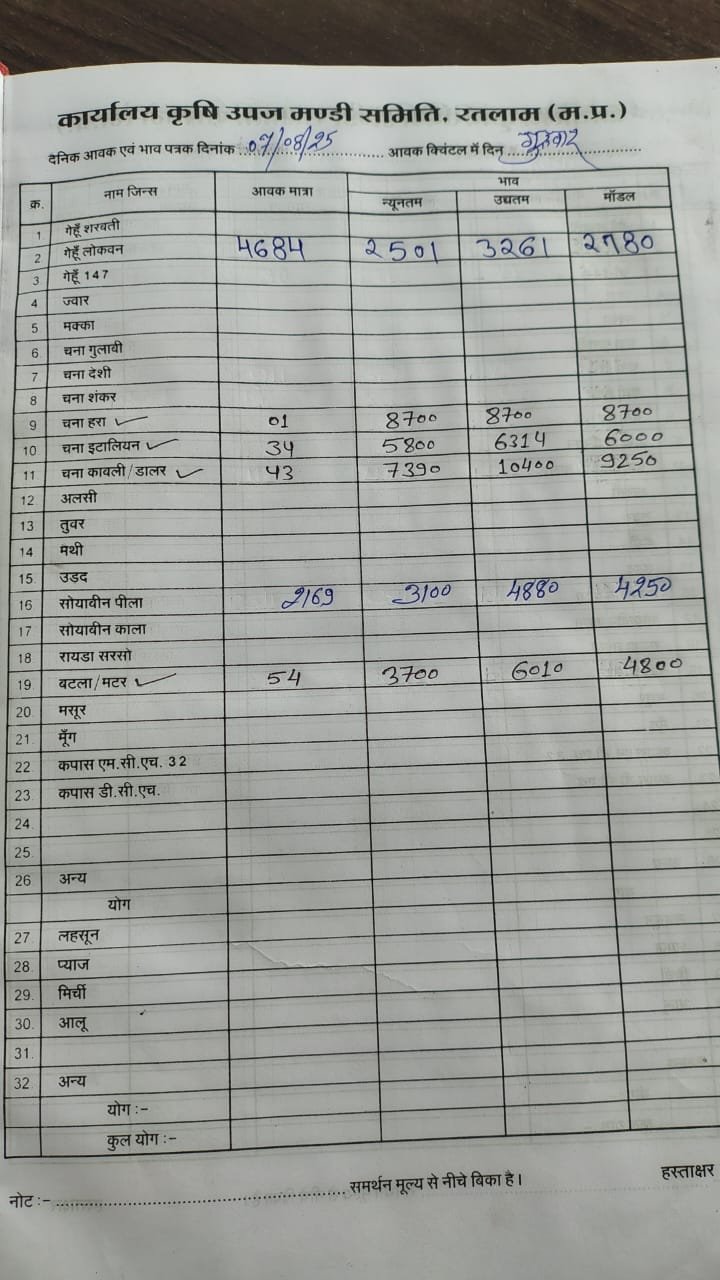 कार्यालय कृषि उपज मण्डी समिति, रतलाम (म.प्र.)
दैनिक आवक एवं भाव पत्रक दिनांक 07/08/25 आवक क्विंटल में दिन गुरुवार
क्र. नाम जिन्स आवक मात्रा भाव
न्यूनतम उच्चतम मॉडल
1 गेहूँ शरवती
2 गेहूँ लोकवन 4684 2501 3261 2780
3 गेहूँ 147
4 ज्वार
5 मक्का
6 चना गुलावी
7 चना देशी
8 चना शंकर
9 चना हरा ✓ 01 8700 8700 8700
10 चना इटालियन ✓ 34 5800 6314 6000
11 चना कावली/डालर ✓ 43 7390 10400 9250
12 अलसी
13 तुवर
14 मथी
15 उडद
16 सोयावीन पीला 2169 3100 4880 4250
17 सोयावीन काला
18 रायडा सरसो
19 वटला/मटर ✓ 54 3700 6010 4800
20 मसूर
21 मूँग
22 कपास एम.सी.एच. 32
23 कपास डी.सी.एच.
24
25
26 अन्य
योग
27 लहसून
28 प्याज
29. मिर्ची
30. आलू
31.
32 अन्य
योग :-
कुल योग :-
नोट :- समर्थन मूल्य से नीचे बिका है। हस्ताक्षर